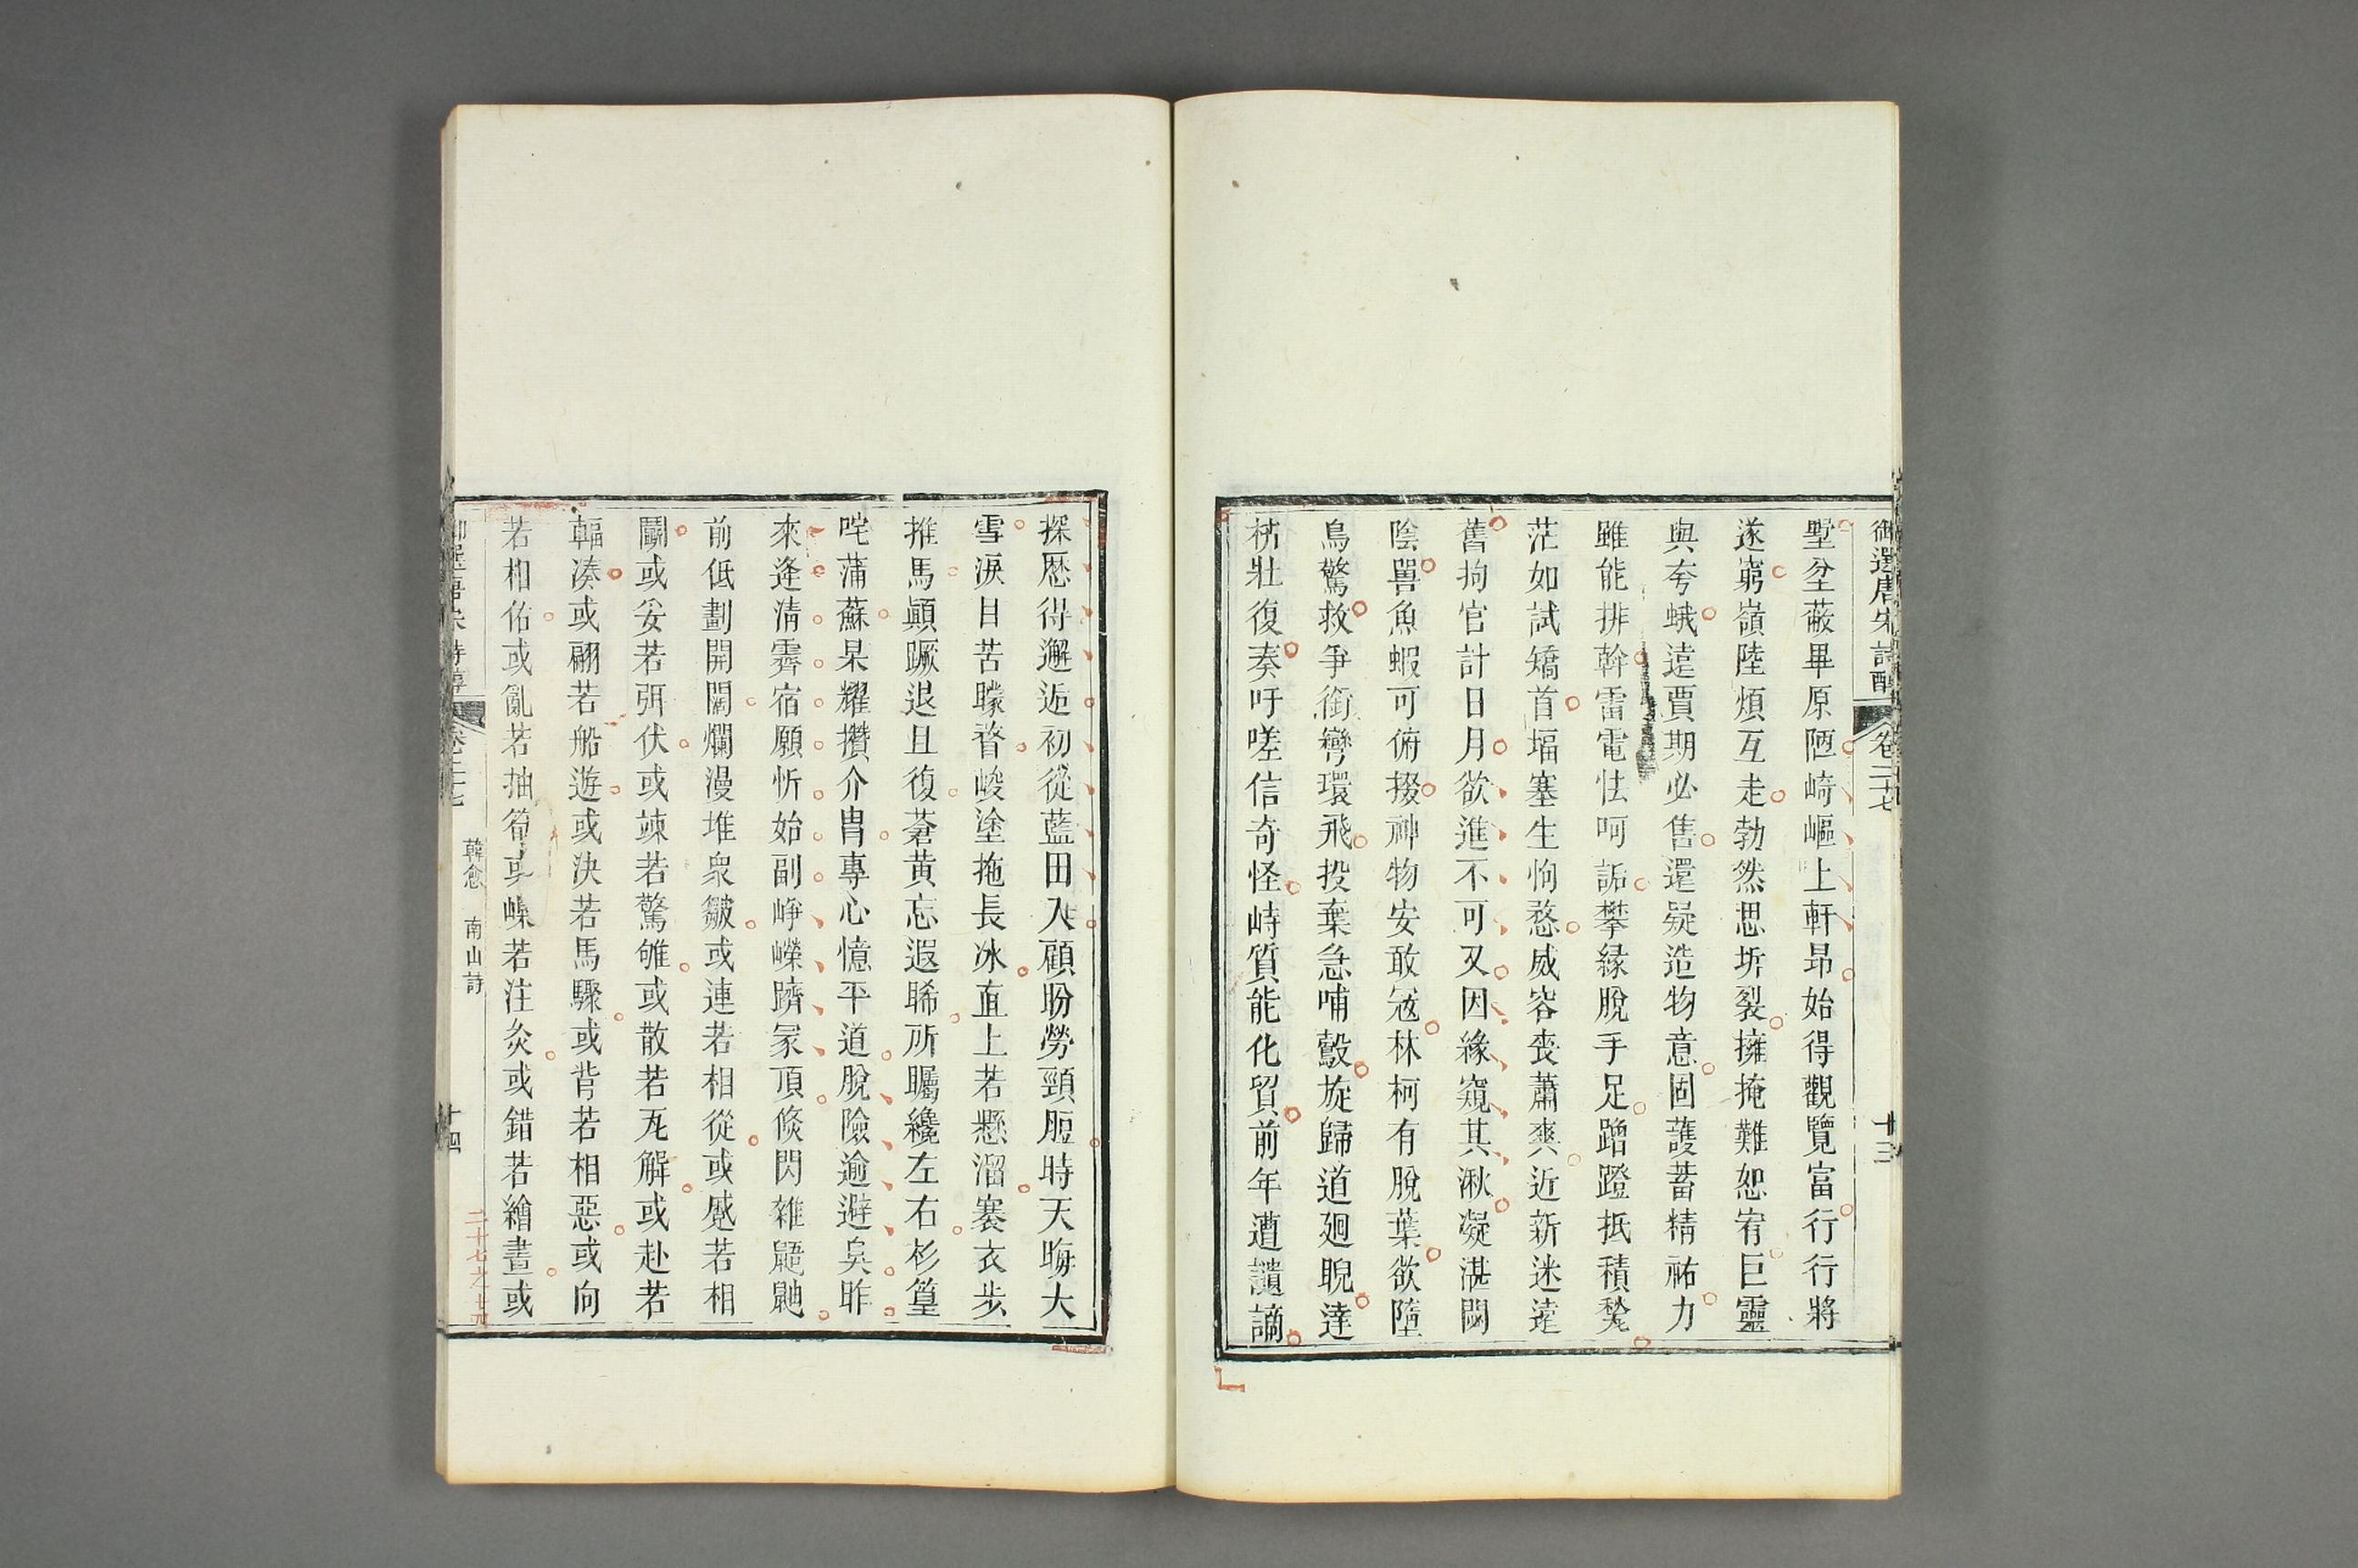 御選唐宋詩醇 卷二十七 十三
墅坌蔽畢原陋崎嶇上軒昂始得觀覽富行行將
遂窮嶺陸煩互走勃然思坼裂擁掩難恕宥巨靈
與夸蛾遠賈期必售還疑造物意固護蓄精祐力
雖能排斡雷電怯呵詬攀緣脫手足蹭蹬抵積甃
茫如試矯首堛塞生怐愗威容喪蕭爽近新迷遠
舊拘官計日月欲進不可又因緣窺其湫凝湛閟
陰嘼魚蝦可俯掇神物安敢寇林柯有脫葉欲墮
鳥驚救爭銜彎環飛投棄急哺鷇旋歸道迴睨達
枿壯復奏吁嗟信奇怪峙質能化貿前年遭譴謫
探歷得邂逅初從藍田入顧盼勞頸脰時天晦大
雪淚目苦矇瞀峻塗拖長冰直上若懸溜褰衣步
推馬顛蹶退且復蒼黃忘遐睎所矚纔左右杉篁
咤蒲蘇杲耀攢介冑專心憶平道脫險逾避臭昨
來逢清霽宿願忻始副崢嶸躋冢頂倏閃雜鼯鼬
前低劃開闊爛漫堆衆皺或連若相從或蹙若相
鬭或妥若弭伏或竦若驚雊或散若瓦解或赴若
輻凑或翩若船遊或決若馬驟或背若相惡或向
若相佑或亂若抽筍或嵲若注灸或錯若繪畫或
御選唐宋詩醇 卷二十七 韓愈 南山詩 十四
二十七之十四